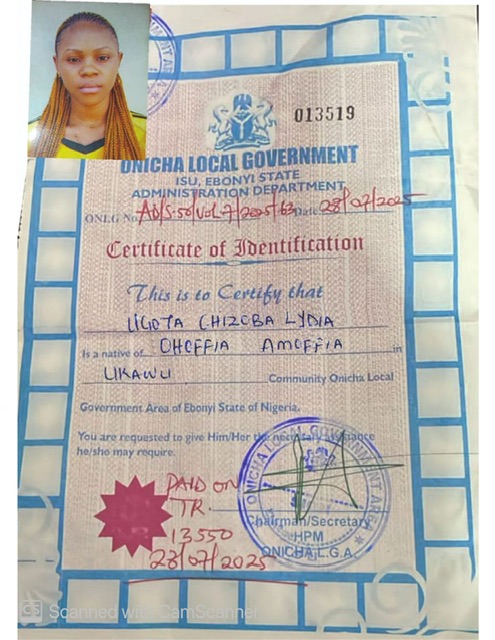 013519
ONICHA LOCAL GOVERNMENT
ISU, EBONYI STATE
ADMINISTRATION DEPARTMENT
ONLG No AD/S.50/VOL.7/2025/63 Date 28/07/2025
Certificate of Identification
This is to Certify that
UGOTA CHIZOBA LYDIA
Is a native of OHOFFIA AMOFFIA in
UKAWU Community Onicha Local
Government Area of Ebonyi State of Nigeria.
You are requested to give Him/Her the necessary Assistance
he/she may require.
ONICHA LOCAL GOVERNMENT AREA
PAID ON
TR.
13550
28/07/2025
Chairman/Secretary
HPM
ONICHA L.G.A.
CS Scanned with CamScanner